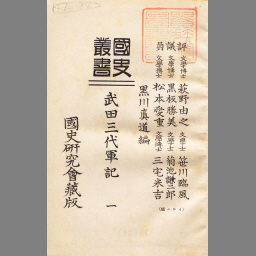 評議員
文學博士 萩野由之 文學士 笹川臨風
文學博士 黒板勝美 文學士 菊池謙二郎
文學博士 松本愛重 文學博士 三宅米吉
黒川真道編
國史叢書
武田三代軍記 一
國史研究會藏版